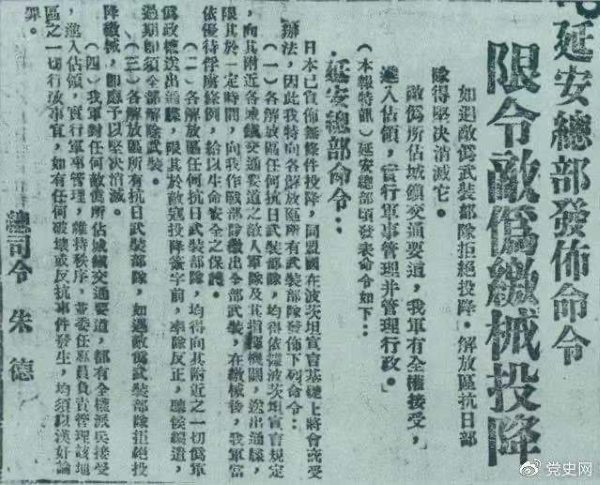 延安總部發佈命令
限令敵僞繳械投降
如遇敵僞武裝部隊拒絕投降,解放區抗日部
隊得堅決消滅它。
敵僞所佔城鎮交通要道,我軍有全權接受,
進入佔領,實行軍事管理并管理行政。
(本報特訊)延安總部頃發表命令如下:
延安總部命令:
日本已宣佈無條件投降,同盟國在波茨坦宣言基礎上將會商受
辦法,因此我特向各解放區所有武裝部隊發佈下列命令:
(一)各解放區任何抗日武裝部隊,均得依據波茨坦宣言規定
,向其附近各城鎮交通要道之敵人軍隊及其指揮機關,送出通牒,
限其於一定時間,向我作戰部隊繳出全部武裝,在繳械後,我軍當
依優待俘虜條例,給以生命安全之保護。
(二)各解放區任何抗日武裝部隊,均得向其附近之一切僞軍
僞政權送出通牒,限其於敵寇投降簽字前,率隊反正,聽候編遣,
過期即須全部解除武裝。
(三)各解放區所有抗日武裝部隊,如遇敵僞武裝部隊拒絕投
降繳械,即應予以堅決消滅。
(四)我軍對任何敵僞所佔城鎮交通要道,都有全權派兵接受
,進入佔領,實行軍事管理,維持秩序,並委任專員負責管理該地
區之一切行政事宜,如有任何破壞或反抗事件發生,均須以漢奸論
罪。
總司令 朱德
@党史网